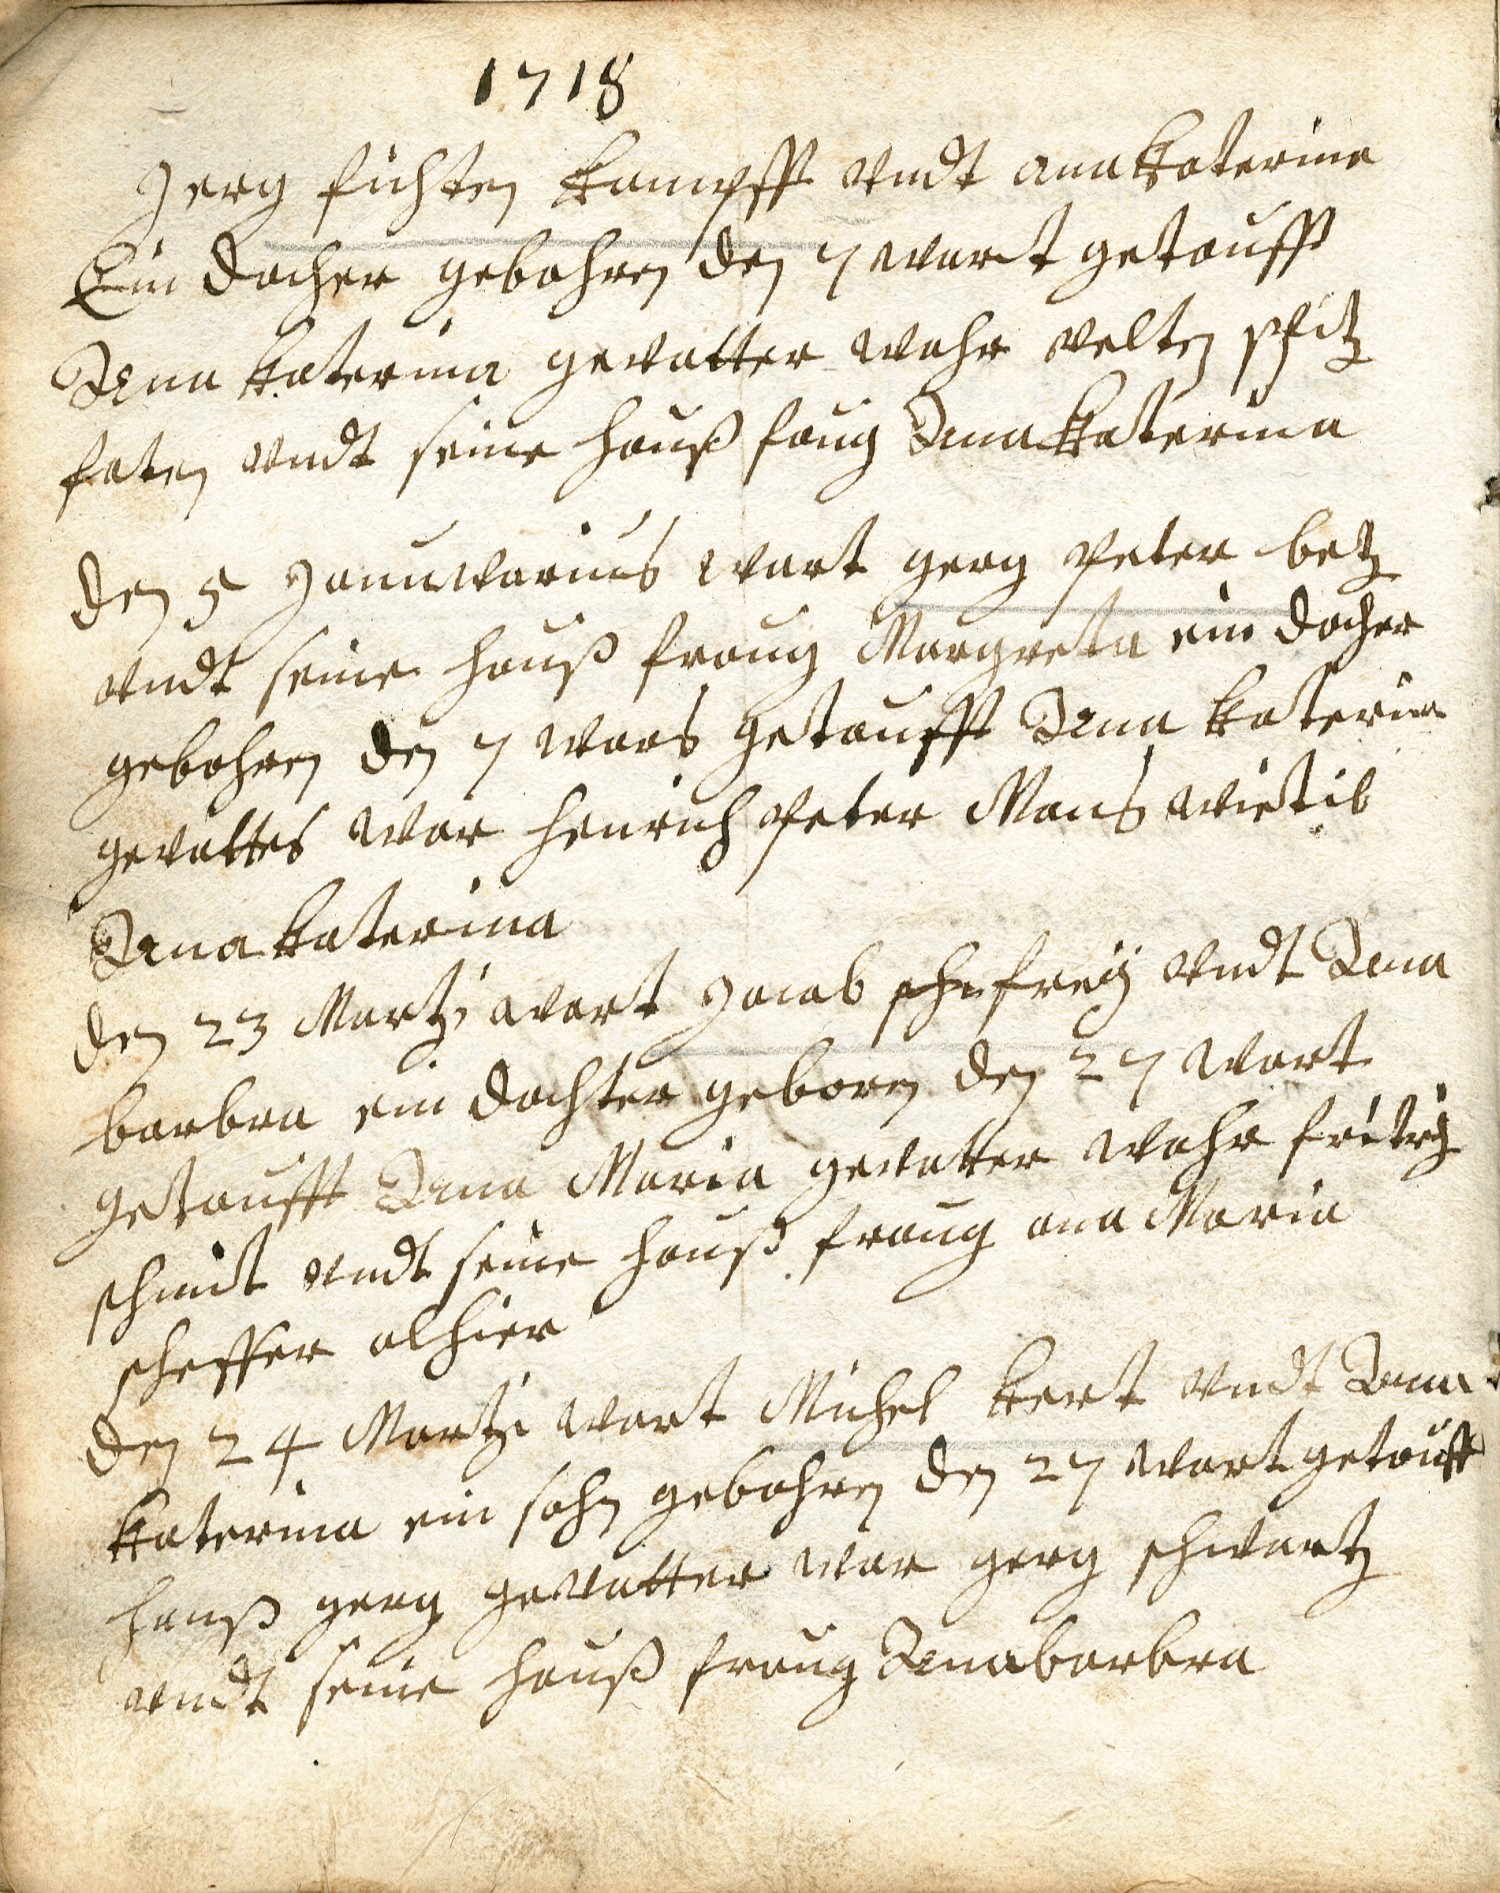 1718
Jerg fichten kampff vndt ana katerina
Ein docher gebohren den 7 wart getaufft
Anna katerina gevatter wahr velten spitz
faten vndt seine hauß faug Anna katerina
den 5 Januwarius wart gerg Peter betz
vndt seine hauß fraug Margreta ein docher
gebohren den 7 wars getaufft Anna katerina
gevattes war henrich Peter Mans wietib
Ana katerina
den 23 Martzi wart Jacob schefrey vndt Anna
barbra ein dochter geboren den 27 wart
getaufft Anna Maria gevatter wahr fritrig
schmit vndt seine hauß fraug ana Maria
scheffer alhier
den 24 Martzi wart Michel kert vndt Anna
katerina ein sohn gebohren den 27 wart getauft
hanß gerg gevatter war gerg schwartz
vndt seine hauß fraug Anna barbra